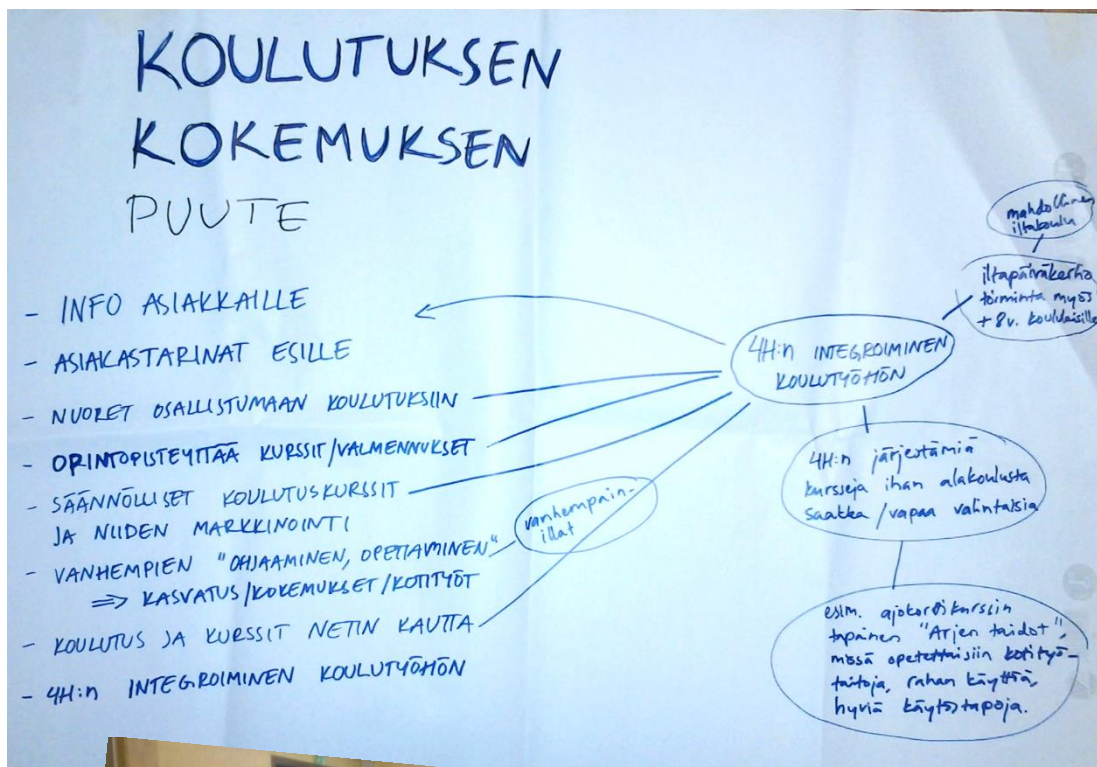 KOULUTUKSEN
KOKEMUKSEN
PUUTE
- INFO ASIAKKAILLE
- ASIAKASTARINAT ESILLE
- NUORET OSALLISTUMAAN KOULUTUKSIIN
- OPINTOPISTEYTTÄÄ KURSSIT/VALMENNUKSET
- SÄÄNNÖLLISET KOULUTUSKURSSIT
JA NIIDEN MARKKINOINTI
- VANHEMPIEN "OHJAAMINEN, OPETTAMINEN"
=> KASVATUS/KOKEMUKSET/KOTITYÖT
- KOULUTUS JA KURSSIT NETIN KAUTTA
- 4H:n INTEGROIMINEN KOULUTYÖHÖN
vanhempain-
illat
mahdollinen
iltakoulu
iltapäiväkerho
toiminta myös
+ 8v. koululaisille
4H:n INTEGROIMINEN
KOULUTYÖHÖN
4H:n järjestämiä
kursseja ihan alakoulusta
saakka / vapaa valintaisia
esim. ajokorttikurssin
tapainen "Arjen taidot",
missä opetettaisiin kotityö-
taitoja, rahan käyttöä,
hyviä käytöstapoja.